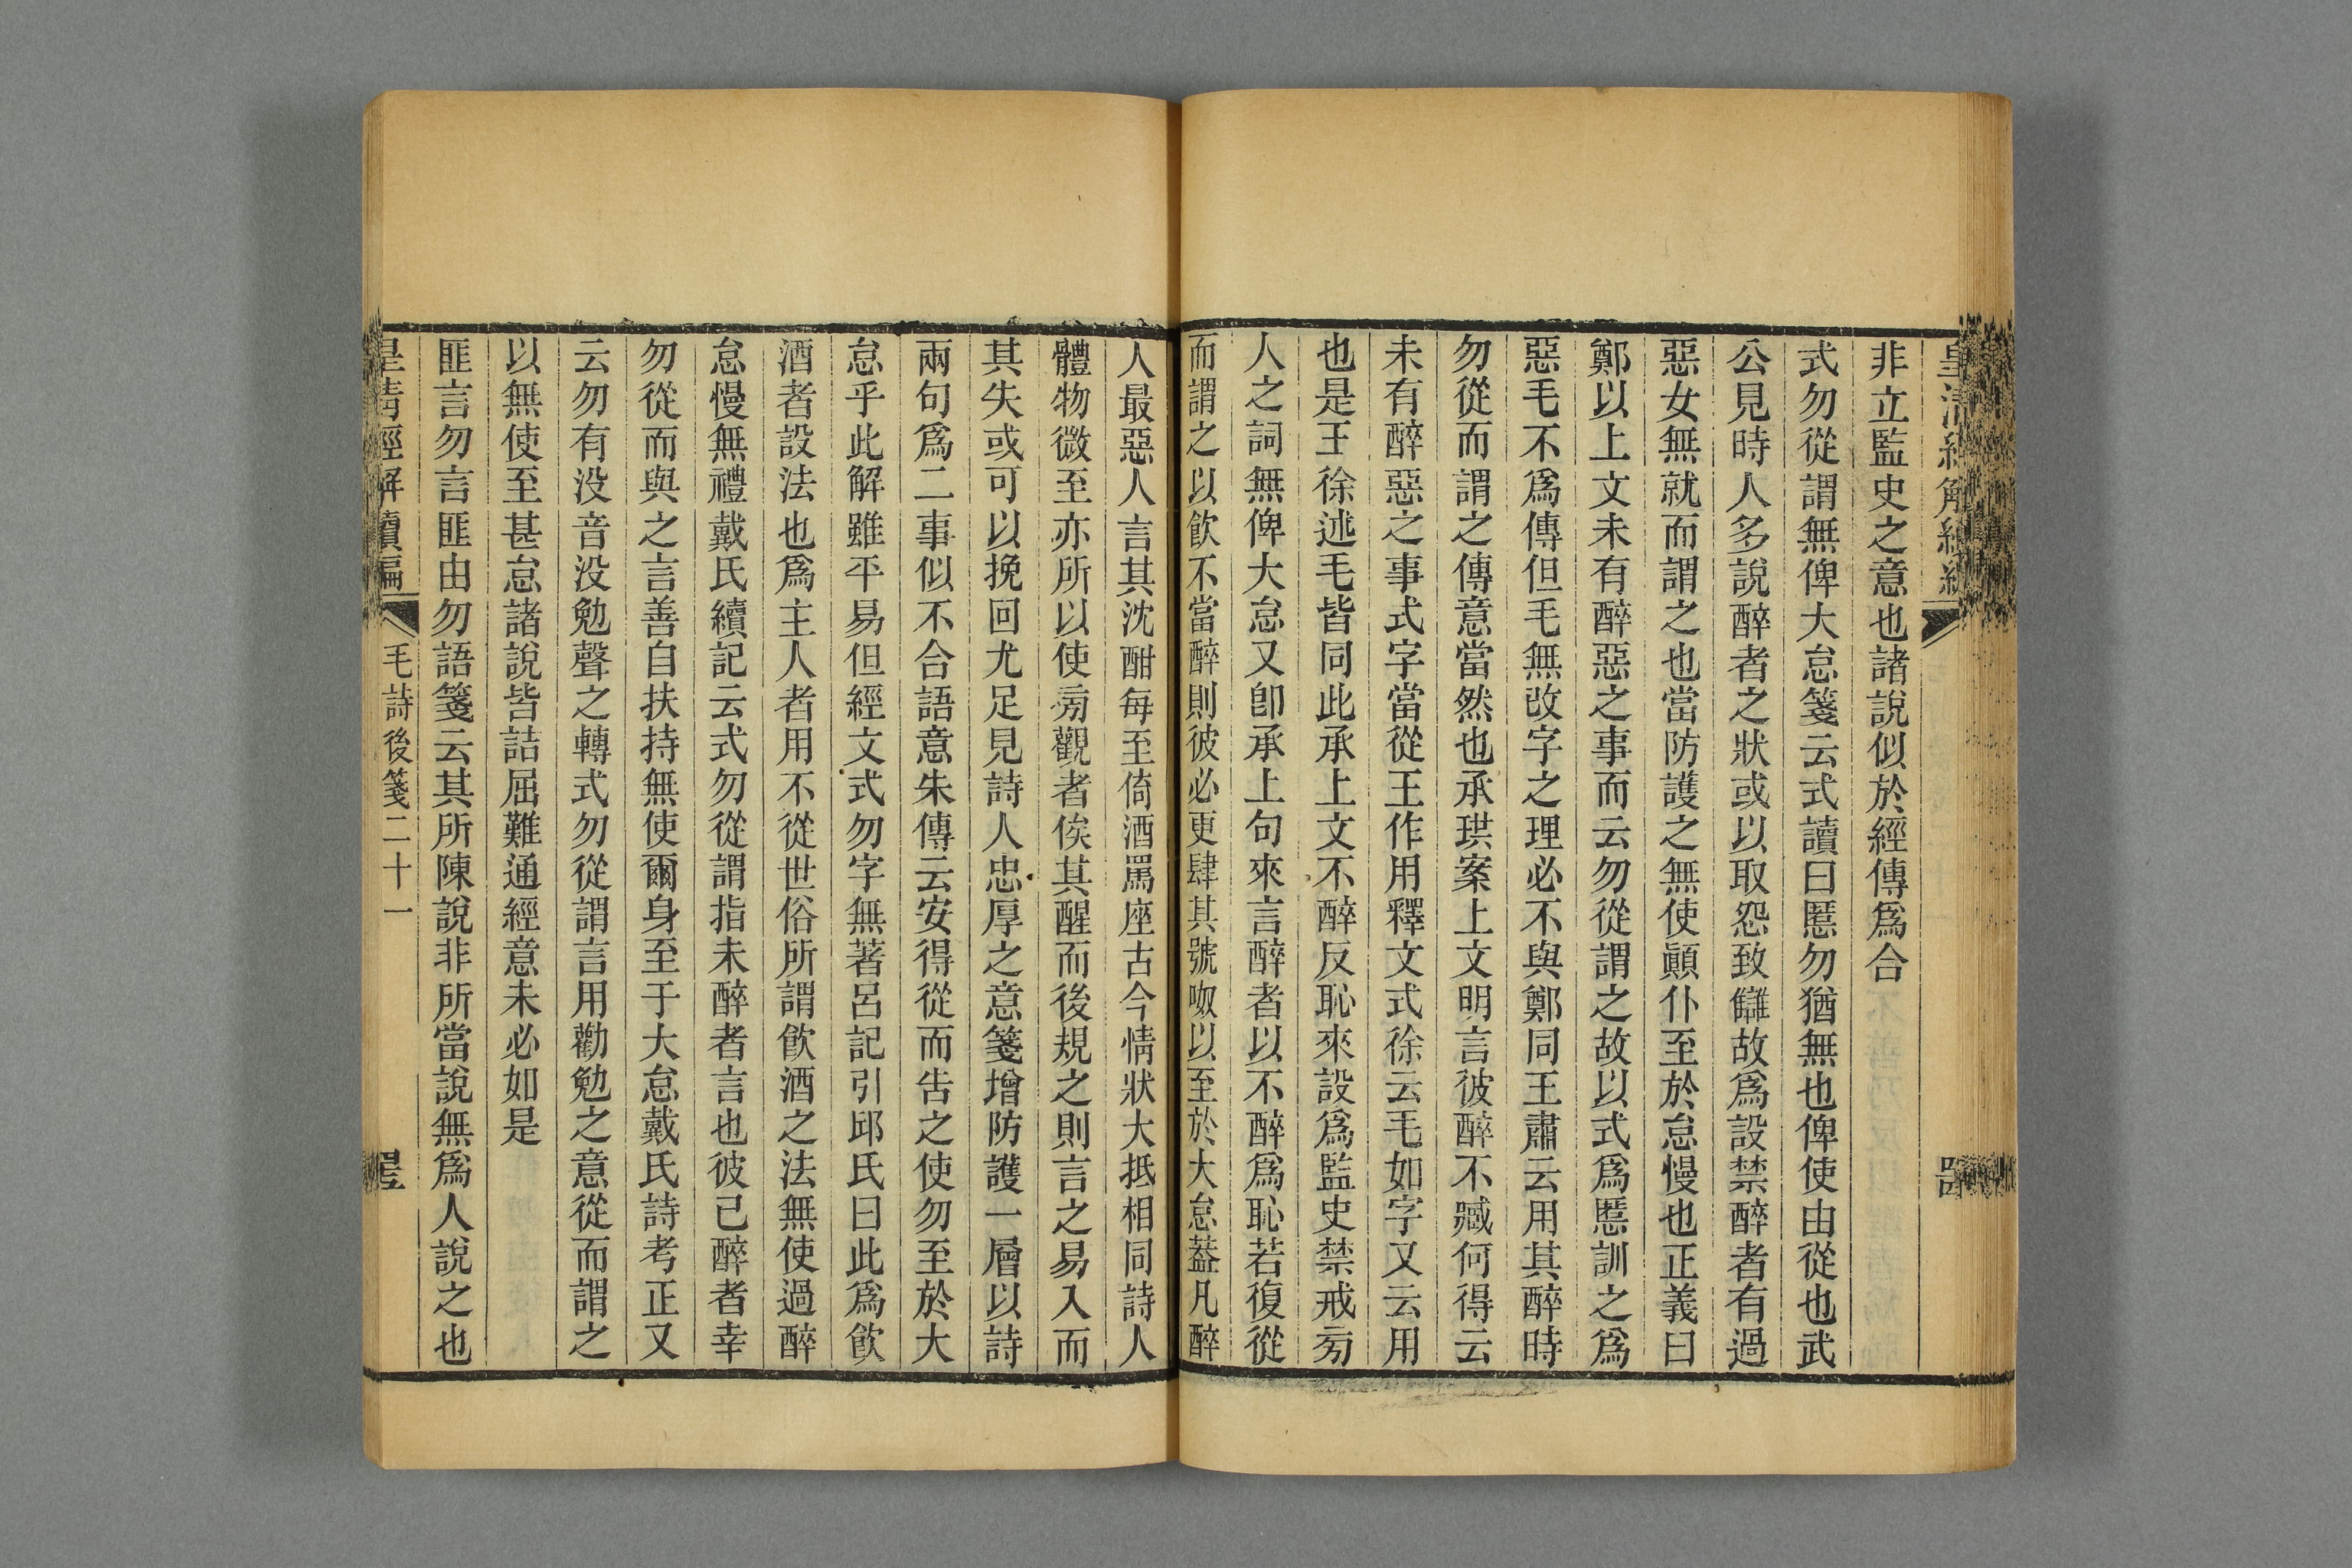 皇清經解續編
非立監史之意也諸說似於經傳爲合
式勿從謂無俾大怠箋云式讀曰慝勿猶無也俾使由從也武
公見時人多說醉者之狀或以取怨致讎故爲設禁醉者有過
惡女無就而謂之也當防護之無使顚仆至於怠慢也正義曰
鄭以上文未有醉惡之事而云勿從謂之故以式爲慝訓之爲
惡毛不爲傳但毛無改字之理必不與鄭同王肅云用其醉時
勿從而謂之傳意當然也承珙案上文明言彼醉不臧何得云
未有醉惡之事式字當從王作用釋文式徐云毛如字又云用
也是王徐述毛皆同此承上文不醉反恥來設爲監史禁戒旁
人之詞無俾大怠又卽承上句來言醉者以不醉爲恥若復從
而謂之以飮不當醉則彼必更肆其號呶以至於大怠葢凡醉
人最惡人言其沈酣每至倚酒罵座古今情狀大抵相同詩人
體物微至亦所以使旁觀者俟其醒而後規之則言之易入而
其失或可以挽回尤足見詩人忠厚之意箋增防護一層以詩
兩句爲二事似不合語意朱傳云安得從而告之使勿至於大
怠乎此解雖平易但經文式勿字無著呂記引邱氏曰此爲飮
酒者設法也爲主人者用不從世俗所謂飮酒之法無使過醉
怠慢無禮戴氏續記云式勿從謂指未醉者言也彼已醉者幸
勿從而與之言善自扶持無使爾身至于大怠戴氏詩考正又
云勿有没音没勉聲之轉式勿從謂言用勸勉之意從而謂之
以無使至甚怠諸說皆詰屈難通經意未必如是
匪言勿言匪由勿語箋云其所陳說非所當說無爲人說之也
皇清經解續編 毛詩後箋二十一